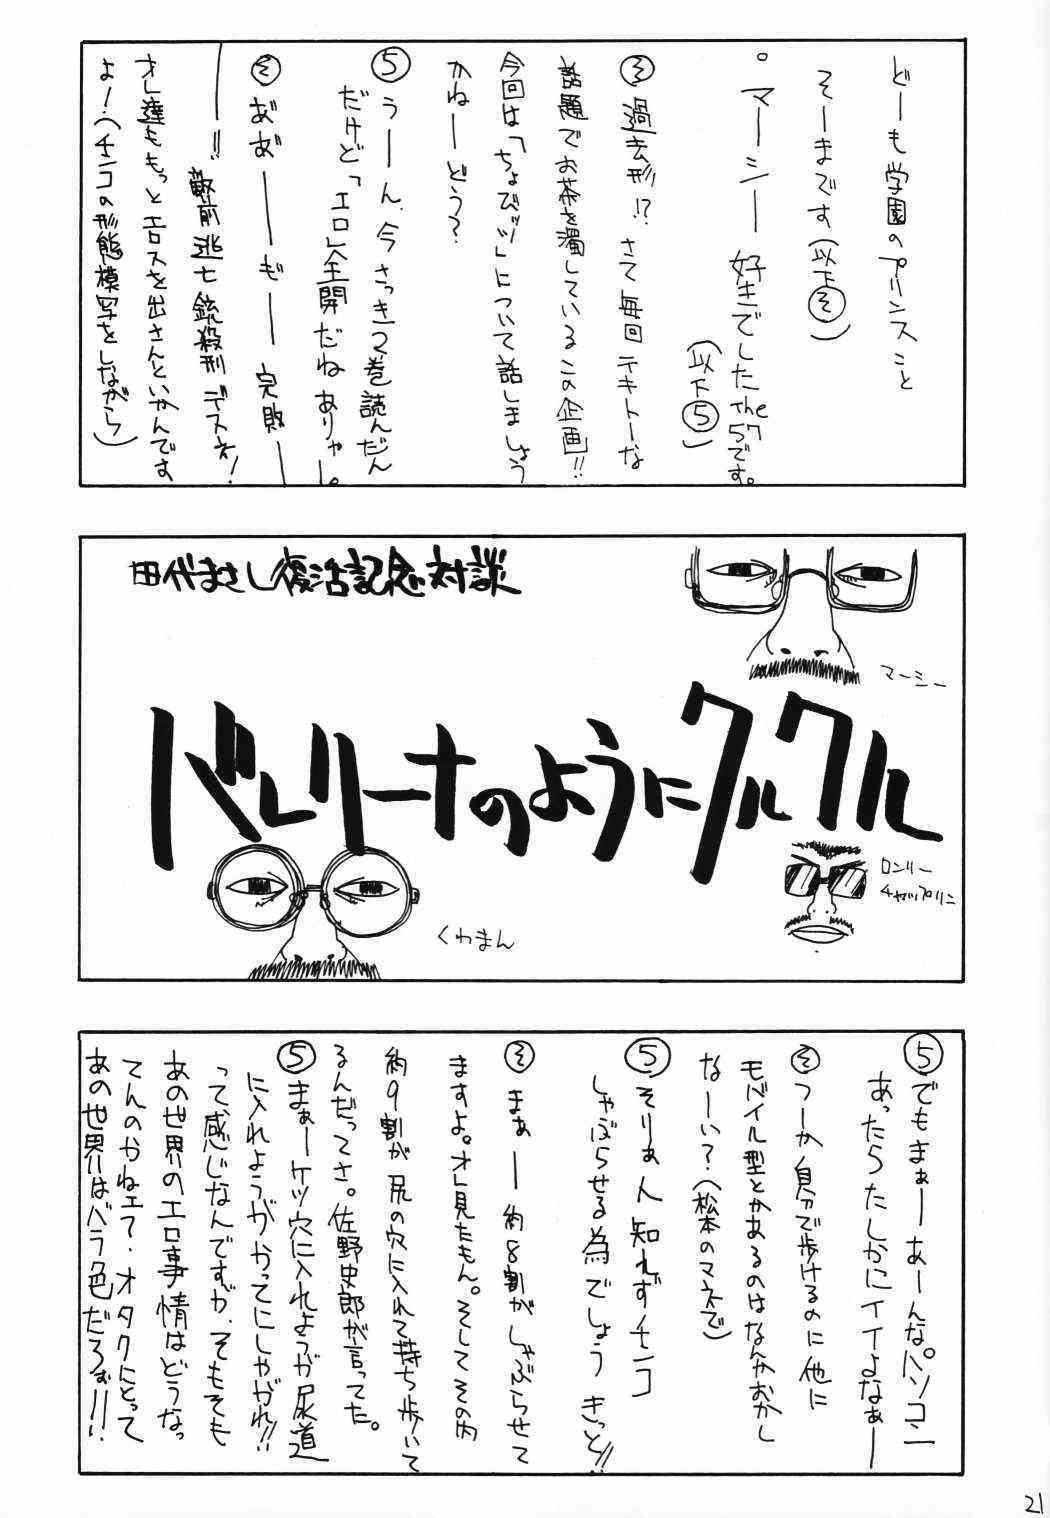 どーも学園のプリンスこと
そーまです(以下そ)
。マーシー好きでしたThe57です。
(以下5)
そ 過去形!?さて毎回テキトーな
話題でお茶を濁しているこの企画!!
今回は「ちょびッツ」について話しましょう
かねーどう?
5 うーん、今さっき2巻読んだん
だけど「エロ」全開だねありゃ。
そ あ゛あ゛ーもー完敗ー
ー!!敵前逃亡銃殺刑デスネ!
オレ達ももっとエロスを出さんといかんです
よ!(チンコの形態模写をしながら)
田代まさし復活記念対談
マーシー
バレリーナのようにクルクル
ロンリー
チャップリン
くわまん
5 でもまぁーあーんなパソコン
あったらたしかにイイよなぁー
そ つーか自分で歩けるのに他に
モバイル型とかあるのはなんかおかし
なーい?(松本のマネで)
5 そりぁ人知れずチンコ
しゃぶらせる為でしょうきっと!!
そ まぁー約8割がしゃぶらせて
ますよ。オレ見たもん。そしてその内
約9割が尻の穴に入れて持ち歩いて
るんだってさ。佐野史郎が言ってた。
5 まぁーケツ穴に入れようが尿道
に入れようがかってにしやがれ!!
って感じなんですが、そもそも
あの世界のエロ事情はどうなっ
てんのかねェ?・オタクにとって
あの世界はバラ色だろぉ!!!
21